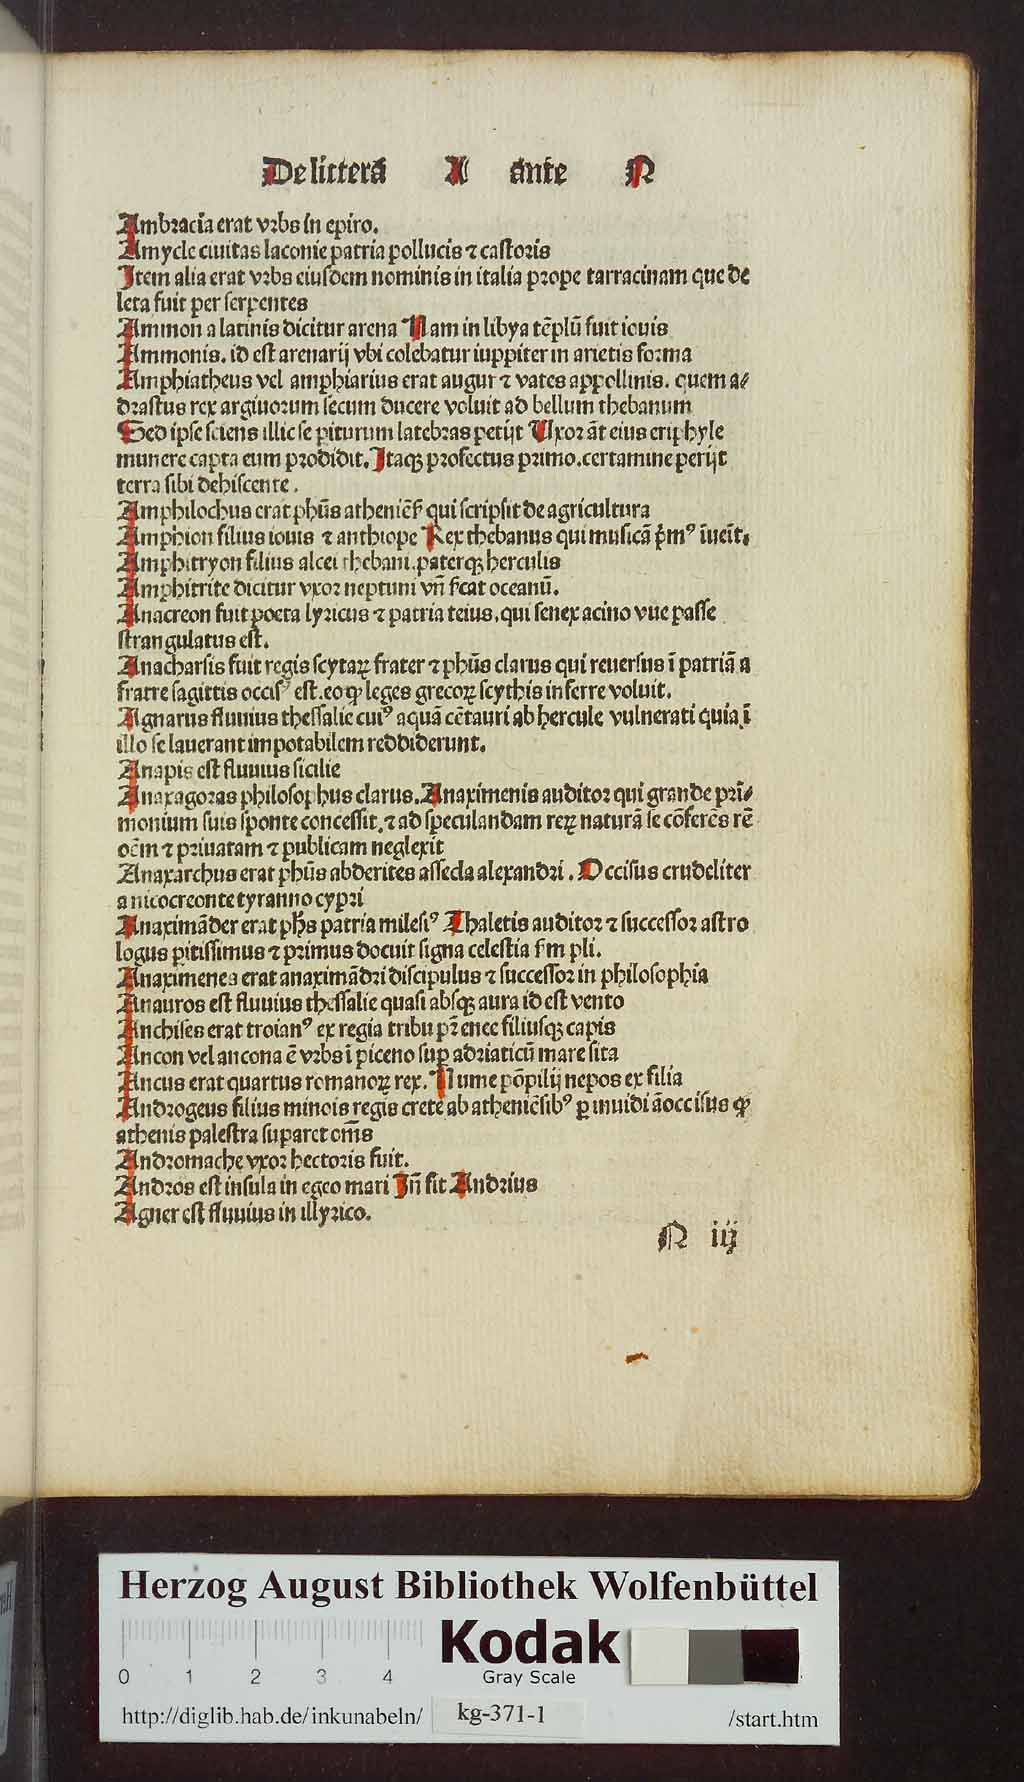 De litterā A ānte N
Ambracia erat vrbs in epiro.
Amycle ciuitas laconie patria pollucis ⁊ castoris
Item alia erat vrbs eiusdem nominis in italia prope tarracinam que de
leta fuit per serpentes
Ammon a latinis dicitur arena Nam in libya tēplū fuit iouis
Ammonis. id est arenarij vbi colebatur iuppiter in arietis forma
Amphiatheus vel amphiarius erat augur ⁊ vates appollinis. quem a⸗
drastus rex argiuorum secum ducere voluit ad bellum thebanum
Sed ipse sciens illic se piturum latebras petijt Uxor āt eius eriphyle
munere capta eum prodidit. Itaqꝫ profectus primo.certamine perijt
terra sibi dehiscente.
Amphilochus erat phūs atheniēs̄ qui scripsit de agricultura
Amphion filius iouis ⁊ anthiope Rex thebanus qui musicā p̄mꝰ īueīt.
Amphitryon filius alcei thebani.paterqꝫ herculis
Amphitrite dicitur vxor neptuni vn̄ s̄cat oceanū.
Anacreon fuit poeta lyricus ⁊ patria teius.qui senex acino vue passe
strangulatus est.
Anacharsis fuit regis scytaꝝ frater ⁊ phūs clarus qui reuersus ī patriā a
fratre sagittis occisꝰ est.eo ꝙ leges grecoꝝ scythis inferre voluit.
Agnarus fluuius thessalie cuiꝰ aquā cētauri ab hercule vulnerati quia ī
illo se lauerant impotabilem reddiderunt.
Anapis est fluuius sicilie
Anaxagoras philosophus clarus.Anaximenis auditor qui grande prī⸗
monium suis sponte concessit.⁊ ad speculandam reꝝ naturā se cōferēs rē
oēm ⁊ priuatam ⁊ publicam neglexit
Anaxarchus erat phūs abderites assecla alexandri. Occisus crudeliter
a nicocreonte tyranno cypri
Anaximāder erat phs̄ patria milesiꝰ Thaletis auditor ⁊ successor astro
logus pitissimus ⁊ primus docuit signa celestia s̄m pli.
Anaximenes erat anaximādri discipulus ⁊ successor in philosophia
Anauros est fluuius thessalie quasi absqꝫ aura id est vento
Anchises erat troianꝰ ex regia tribu pr̄ enee filiusqꝫ capis
Ancon vel ancona ē vrbs ī piceno suꝑ adriaticū mare sita
Ancus erat quartus romanoꝝ rex. Nume pōpilij nepos ex filia
Androgeus filius minois regis crete ab atheniēsibꝰ ꝑ inuidiā occisus ꝙ
athenis palestra suparet om̄s
Andromache vxor hectoris fuit.
Andros est insula in egeo mari In̄ fit Andrius
Agner est fluuius in illyrico.
N iij
Herzog August Bibliothek Wolfenbüttel
Kodak
0 1 2 3 4 Gray Scale
http://diglib.hab.de/inkunabeln/ kg-371-1 /start.htm